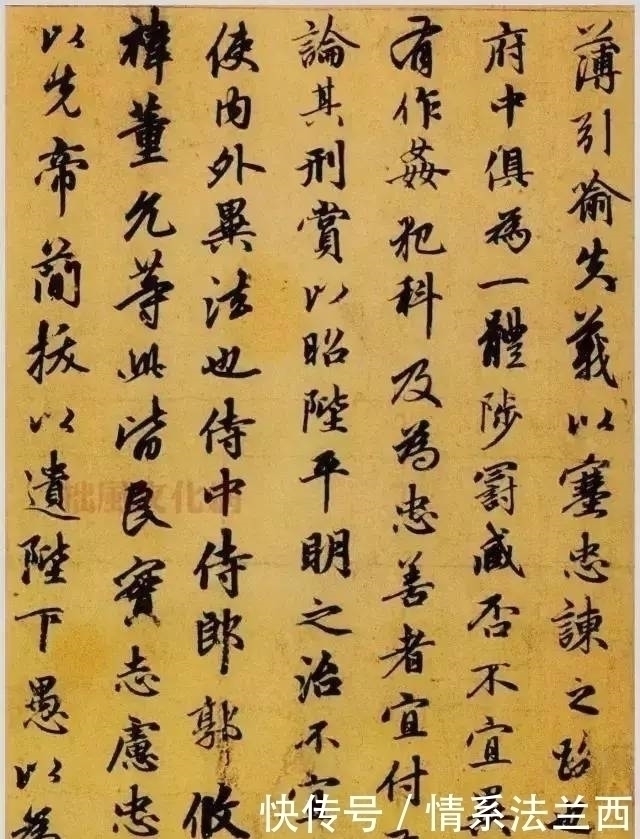 薄引喻失義以塞忠諫之路
府中俱為一體陟罰臧否不宜
有作姦犯科及為忠善者宜付
論其刑賞以昭陛平明之治不宜
使內外異法也侍中侍郎郭攸
禕董允等此皆良實志慮忠
以先帝簡拔以遺陛下愚以為
拙風文化網
快传号 / 情系法兰西